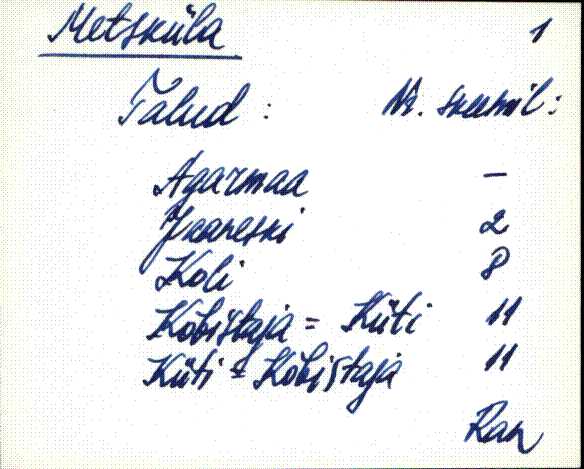 Metsküla 1
Talud: Nr. skeemil:
Agarmaa –
Jaaneski 2
Koli 8
Kobistaja = Küti 11
Küti = Kobistaja 11
Ran